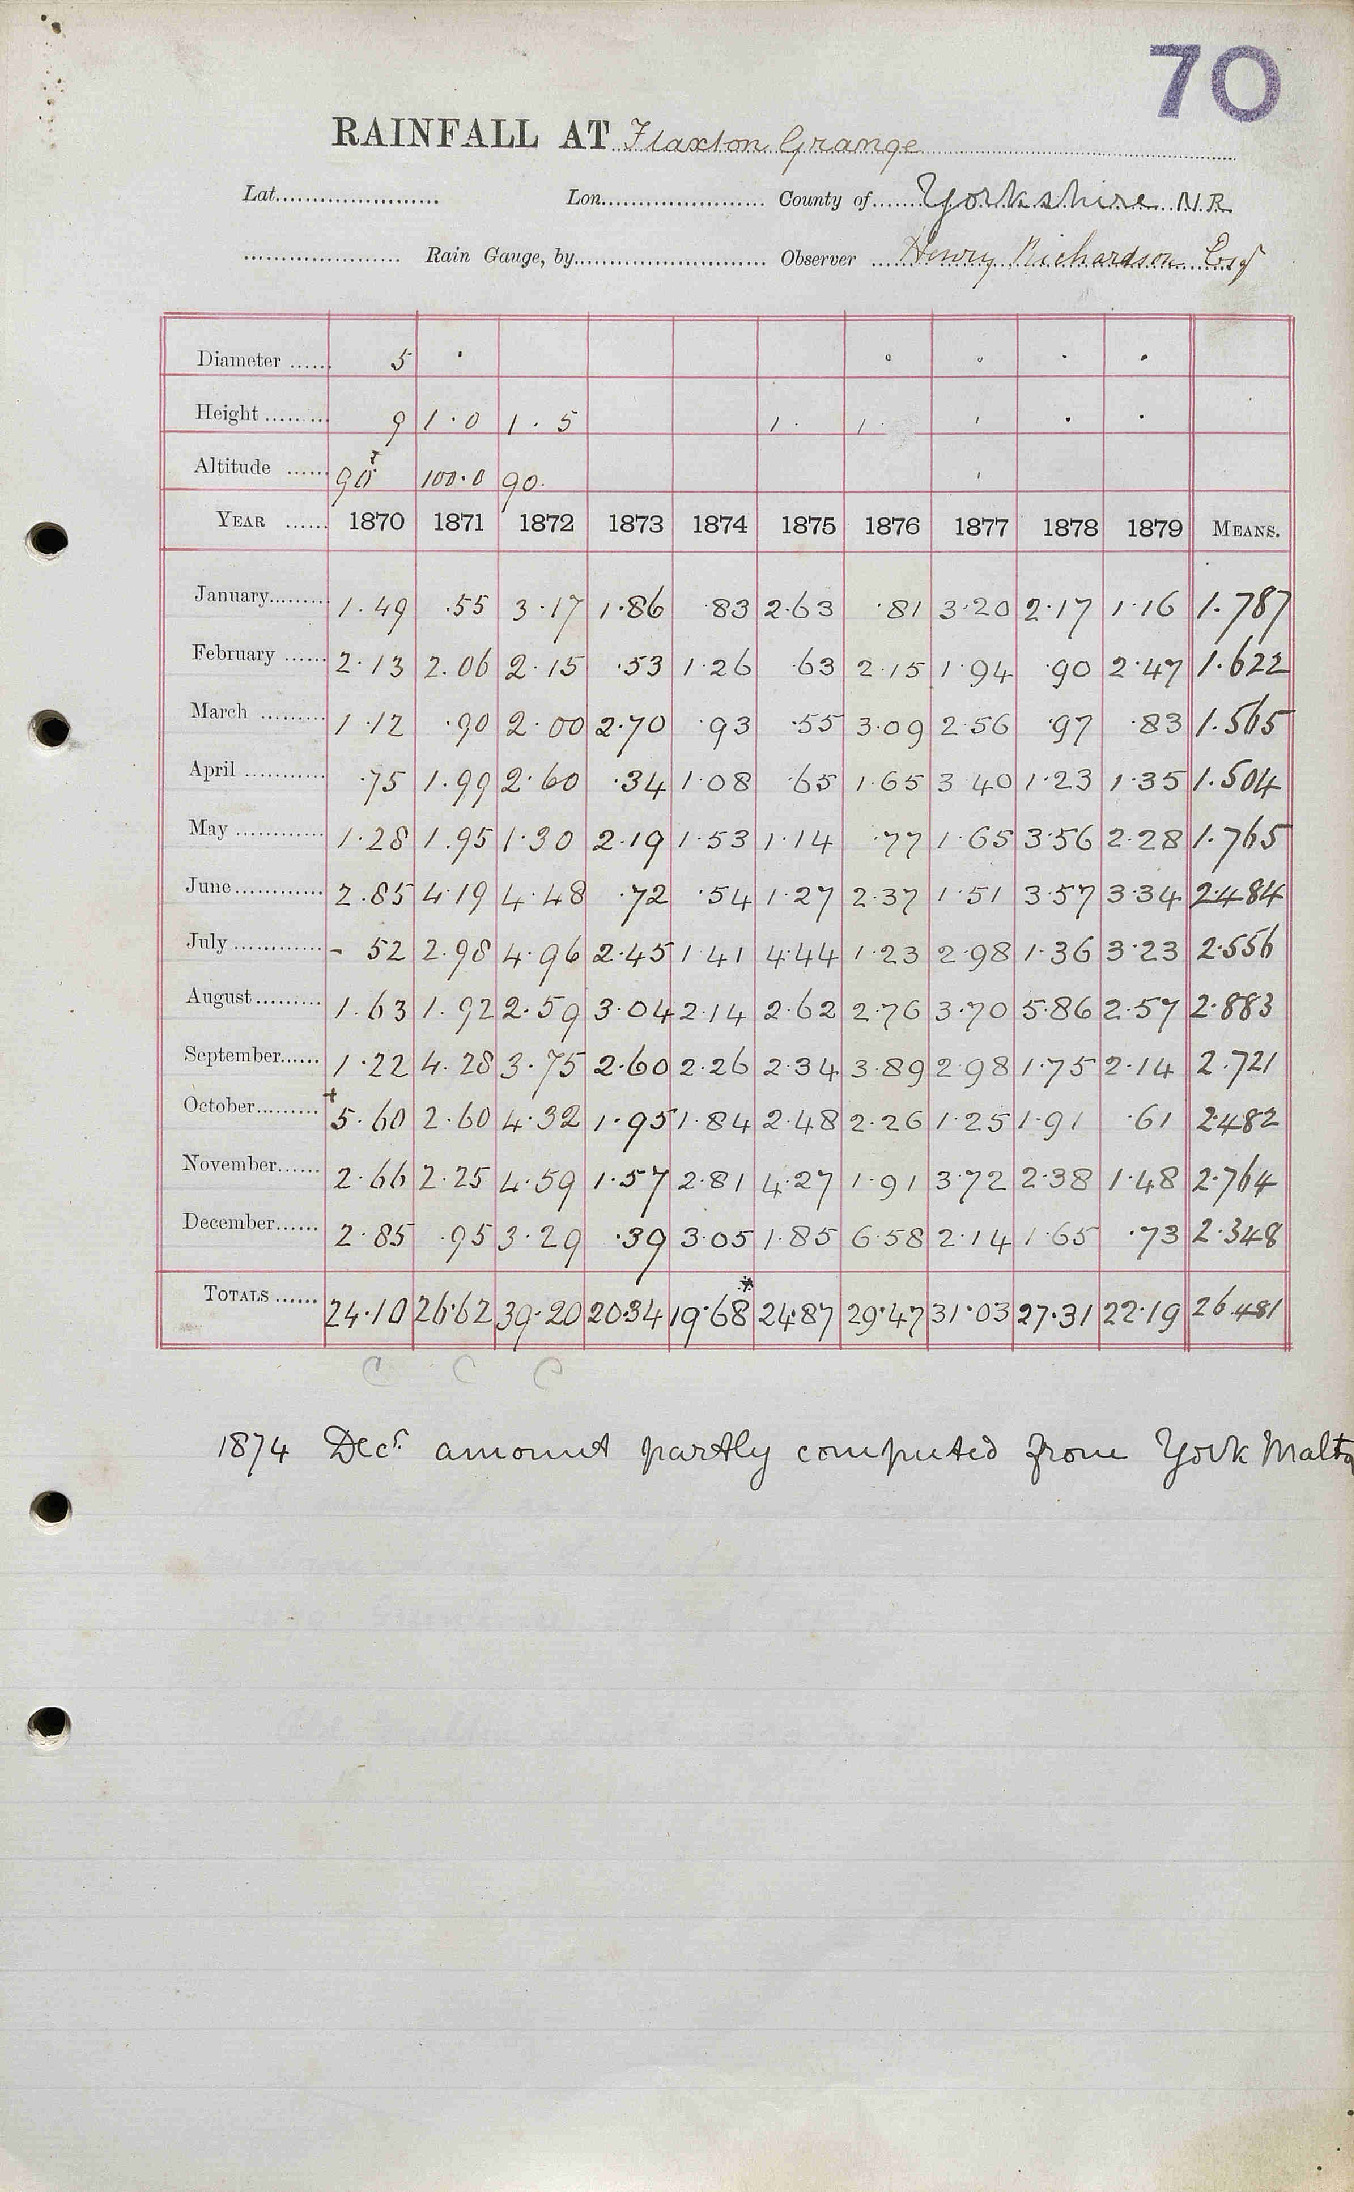 70
RAINFALL AT Flaxton Grange
Lat. Lon. County of Yorkshire N.R.
Rain Gauge, by Observer Henry Richardson Esq
Diameter 5
Height 9 1.0 1.5 1. 1.
Altitude 90 100.0 90.
YEAR 1870 1871 1872 1873 1874 1875 1876 1877 1878 1879 MEANS.
January 1.49 .55 3.17 1.86 .83 2.63 .81 3.20 2.17 1.16 1.787
February 2.13 2.06 2.15 .53 1.26 .63 2.15 1.94 .90 2.47 1.622
March 1.12 .90 2.00 2.70 .93 .55 3.09 2.56 .97 .83 1.565
April .75 1.99 2.60 .34 1.08 .65 1.65 3.40 1.23 1.35 1.504
May 1.28 1.95 1.30 2.19 1.53 1.14 .77 1.65 3.56 2.28 1.765
June 2.85 4.19 4.48 .72 .54 1.27 2.37 1.51 3.57 3.34 2.484
July - 52 2.98 4.96 2.45 1.41 4.44 1.23 2.98 1.36 3.23 2.556
August 1.63 1.92 2.59 3.04 2.14 2.62 2.76 3.70 5.86 2.57 2.883
September 1.22 4.28 3.75 2.60 2.26 2.34 3.89 2.98 1.75 2.14 2.721
October + 5.60 2.60 4.32 1.95 1.84 2.48 2.26 1.25 1.91 .61 2.482
November 2.66 2.25 4.59 1.57 2.81 4.27 1.91 3.72 2.38 1.48 2.764
December 2.85 .95 3.29 .39 3.05 1.85 6.58 2.14 1.65 .73 2.348
TOTALS 24.10 26.62 39.20 20.34 19.68* 24.87 29.47 31.03 27.31 22.19 26.481
C C C
1874 Decr. amount partly computed from York Malto